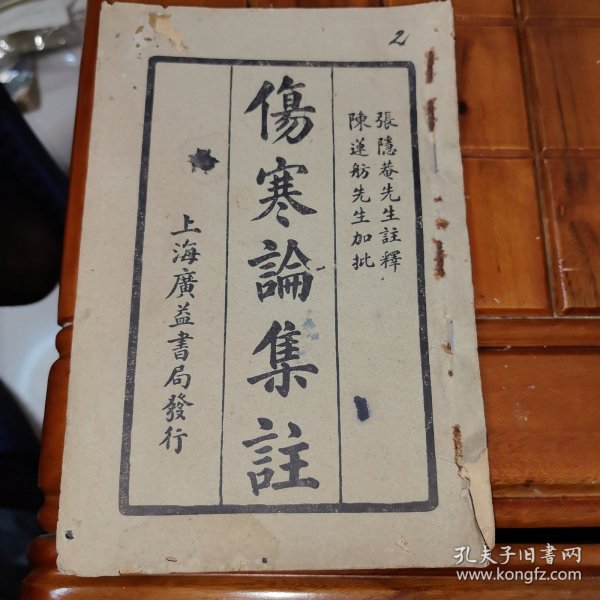 2
張隱菴先生註釋
陳蓮舫先生加批
傷寒論集註
上海廣益書局發行
孔夫子旧书网
www.kongfz.com